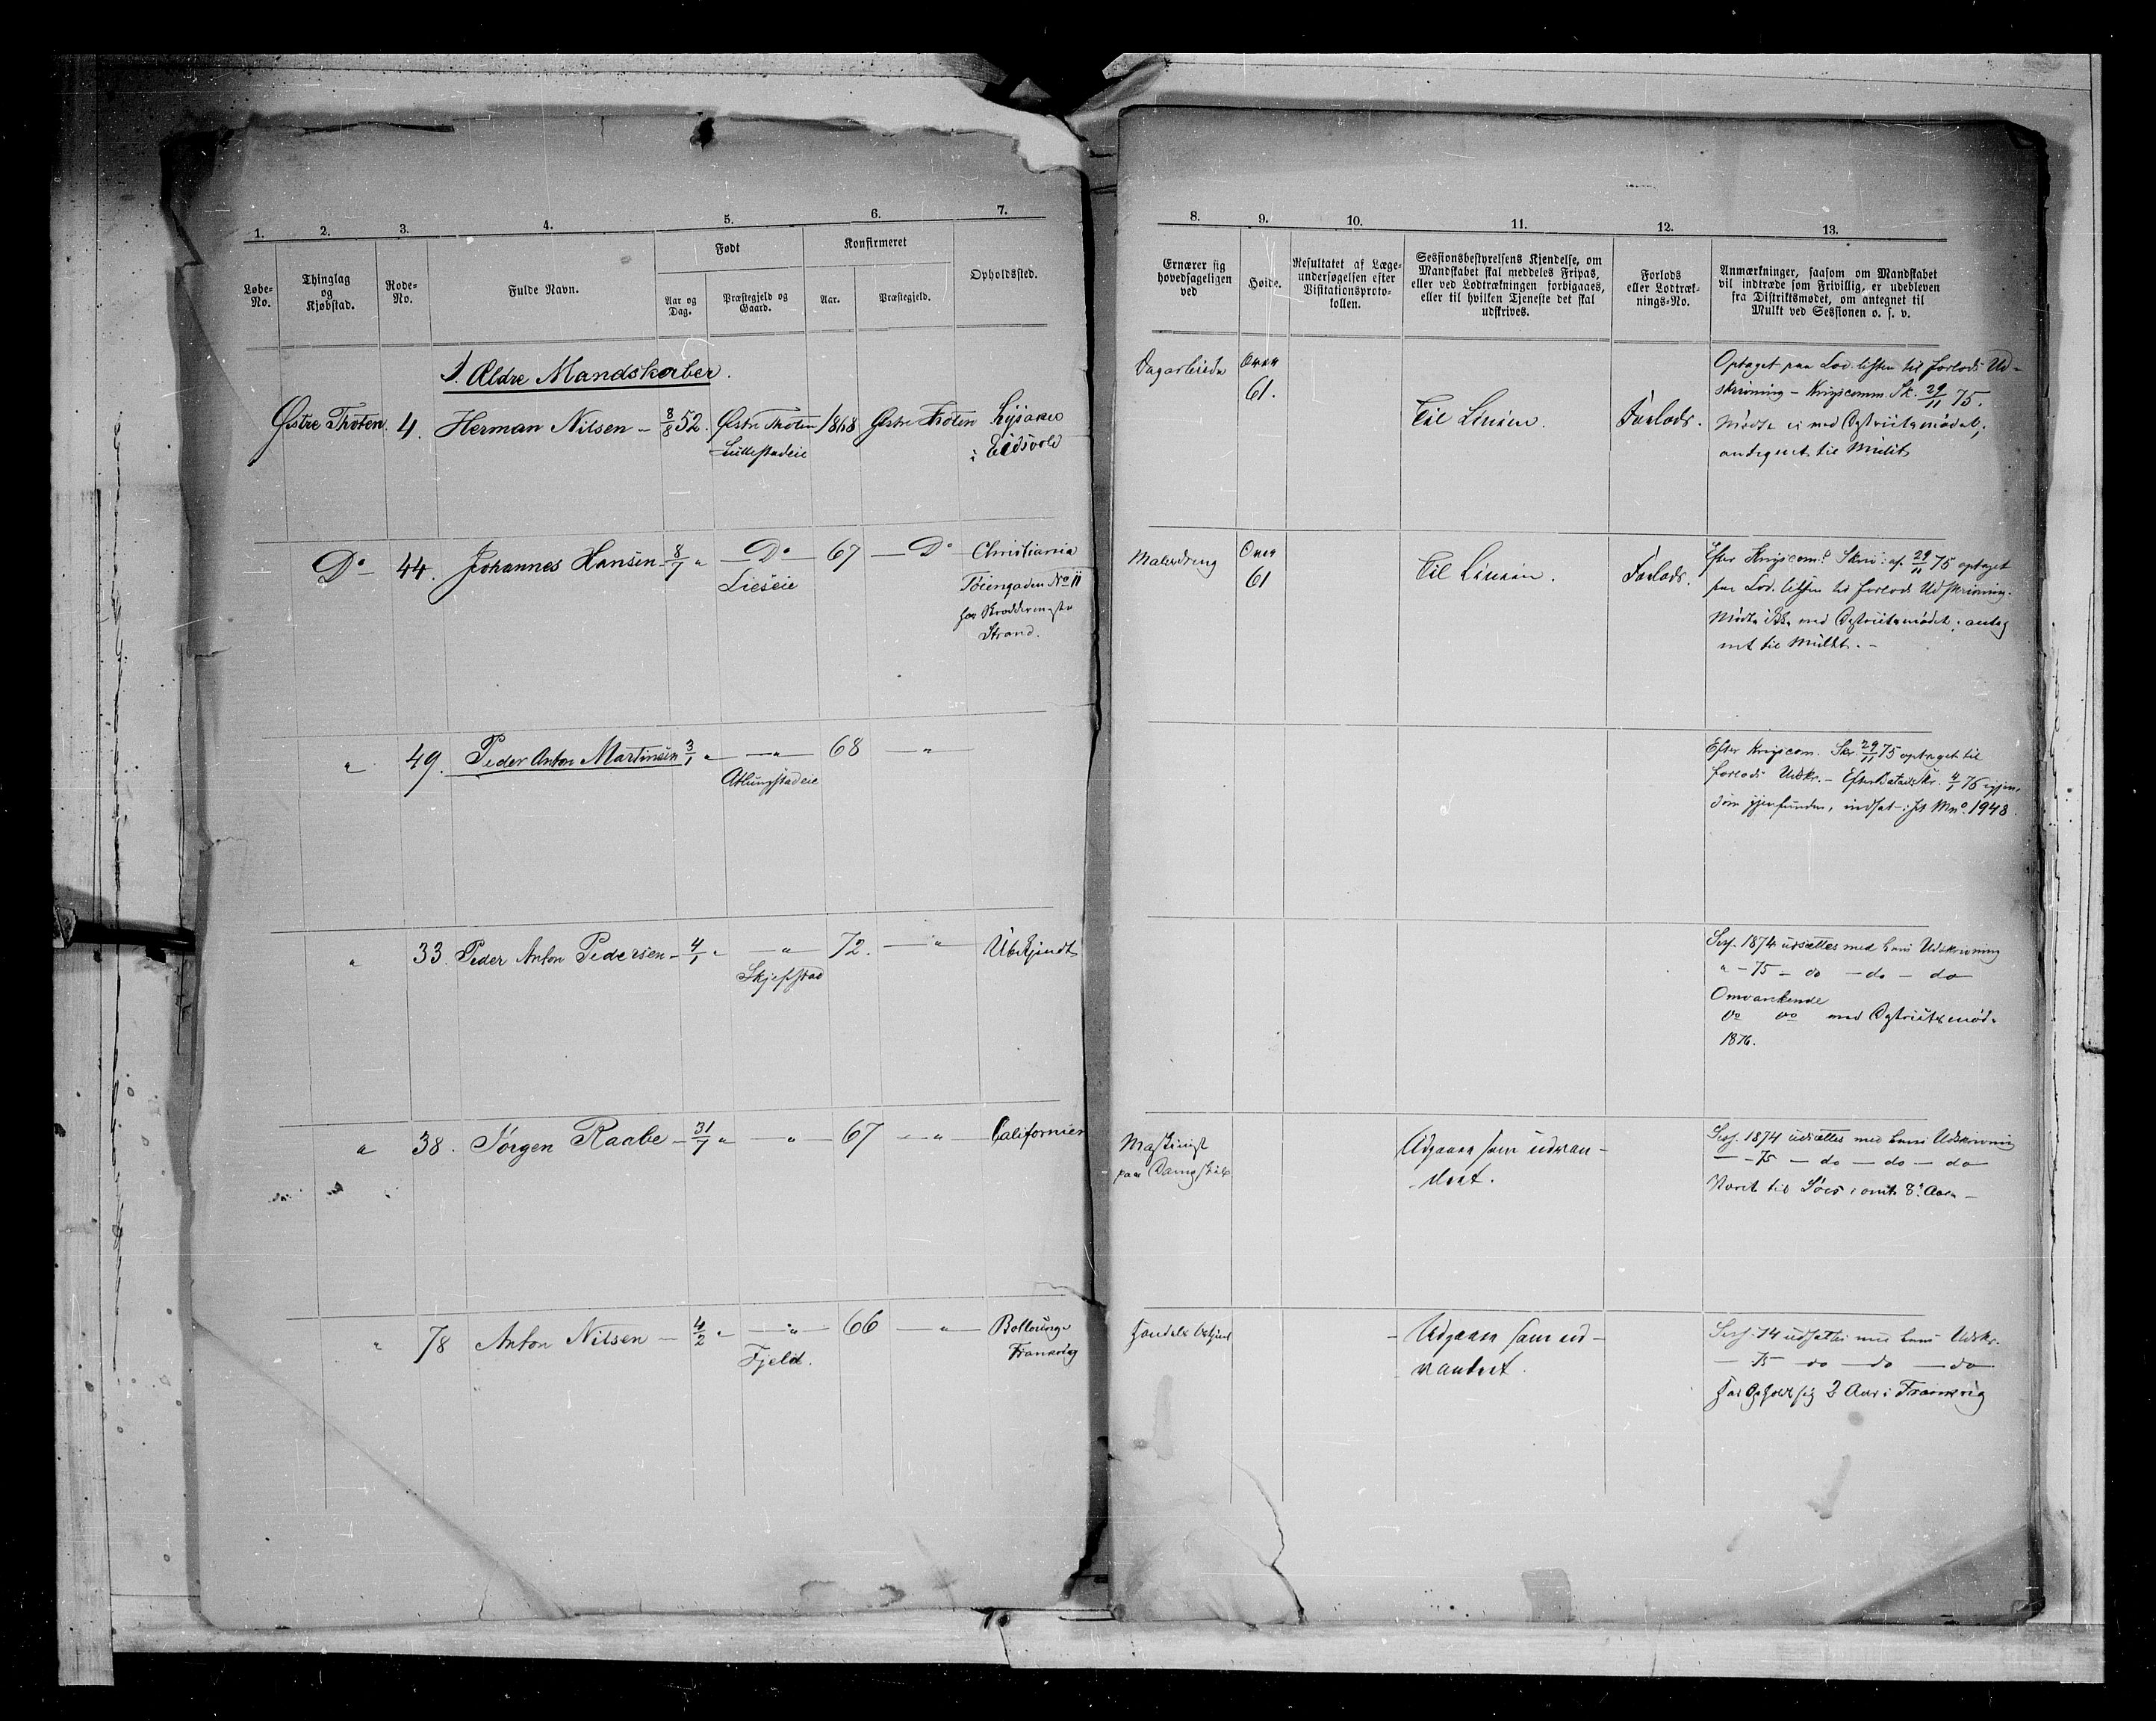 1. 2. 3. 4. 5. 6. 7.
Løbe-No. Thinglag og Kjøbstad. Rode-No. Fulde Navn. Født Konfirmeret Opholdssted.
Aar og Dag. Præstegjeld og Gaard. Aar. Præstegjeld.
1. Ældre Mandskaber.
Østre Thoten. 4. Herman Nilsen – 8/8 52. Østre Thoten 1868 Østre Thoten
Lillestadeie i Eidsvold
Do 44. Johannes Hansen – 8/7 " — Do — 67 — Do Christiania
Lieseie Tøiengaden No 11
for
Strand.
" 49. Peder Anton Martinsen 3/1 " — " — 68 — " —
Alhungstadeie
" 33. Peder Anton Pedersen – 4/1 " — " — 72. — " — Ubekjendt
Skjefstad
" 38. Jørgen Raabe – 31/7 " — " — 67 — " — Californien
" 78 Anton Nilsen — 4/2 " — " — 66 — " —
Fjeld. Frankrig
8. 9. 10. 11. 12. 13.
Ernærer sig hovedsageligen ved
Høide.
Resultatet af Læge-
undersøgelsen efter
Visitationsproto-
kollen.
Sessionsbestyrelsens Kjendelse, om
Mandskabet skal meddeles Fripas,
eller ved Lodtrækningen forbigaaes,
eller til hvilken Tjeneste det skal
udskrives.
Forlods
eller Lodtræk-
nings-No.
Anmærkninger, saasom om Mandskabet
vil indtræde som Frivillig, er udebleven
fra Distriktsmødet, om antegnet til
Mulkt ved Sessionen o. s. v.
Dagarbeide Over
61. Til Linien. Forlods.
Optaget paa Lod.listen til forlods Ud-
skrivning – Krigscomm. Sk. 29/11 75.
Mødte ei ved Distriktsmødet;
antegnet til Mulkt
Malerdreng Over
61 Til Linien. Forlods.
Efter Krigscom. Skriv: af 29/11 75 optaget
paa Lod.listen til forlods Udskrivning.
Mødte ikke ved Distriktsmødet; anteg
net til Mulkt. –
Efter Krigscom. Skr. 29/11 75 optaget til
forlods Udskr. – Efter Skr. 4/1 76 igjen,
som gjenfunden, indsat i No. 1948
Sess. 1874 udsættes med hans Udskrivning
" – 75 – do – do – do
Omvankende
do do ved Distriktsmød.
1876.
Maskinist
paa Dampskib
Udgaaer som udvan-
dret.
Sess. 1874 udsættes med hans Udskrivning
— – 75 – do – do – do
Været til Søes i omt. 8 Aar –
Handelsbetjent
– Udgaaer som ud-
vandret.
Sess. 74 udsættes med hans Udskr.
— 75 – do – do — do
har opholdt sig 2 Aar i Frankrig